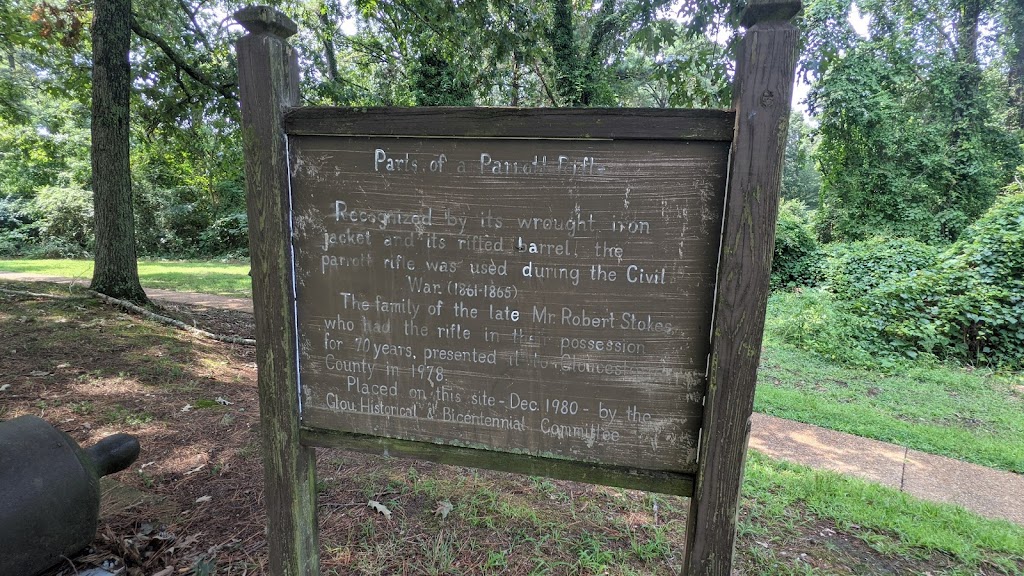 Parts of a Parrott Rifle
Recognized by its wrought iron
jacket and its rifled barrel, the
parrott rifle was used during the Civil
War. (1861-1865)
The family of the late Mr Robert Stokes
who had the rifle in their possession
for 70 years, presented it to Gloucester
County in 1978.
Placed on this site - Dec. 1980 - by the
Glou. Historical & Bicentennial Committee